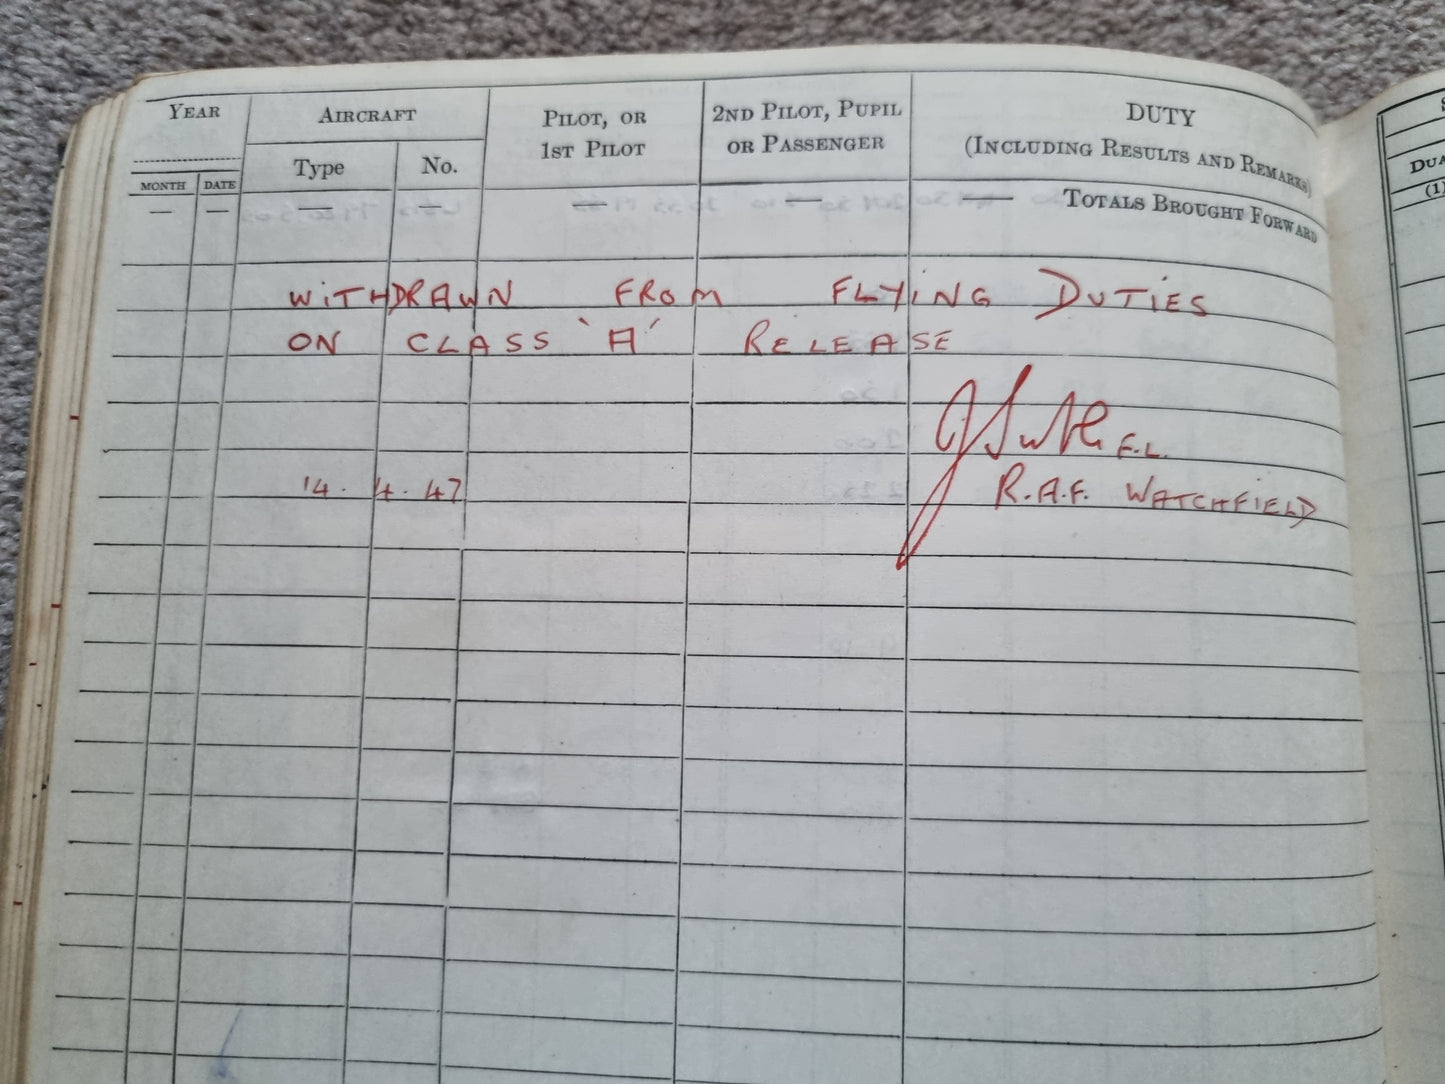 YEAR
AIRCRAFT
PILOT, OR
1ST PILOT
2ND PILOT, PUPIL
OR PASSENGER
DUTY
(INCLUDING RESULTS AND REMARKS)
MONTH DATE
Type No.
— — — — — — — TOTALS BROUGHT FORWARD
WITHDRAWN FROM FLYING DUTIES
ON CLASS 'A' RELEASE
F.L.
14. 4. 47
R.A.F. WATCHFIELD
(1)